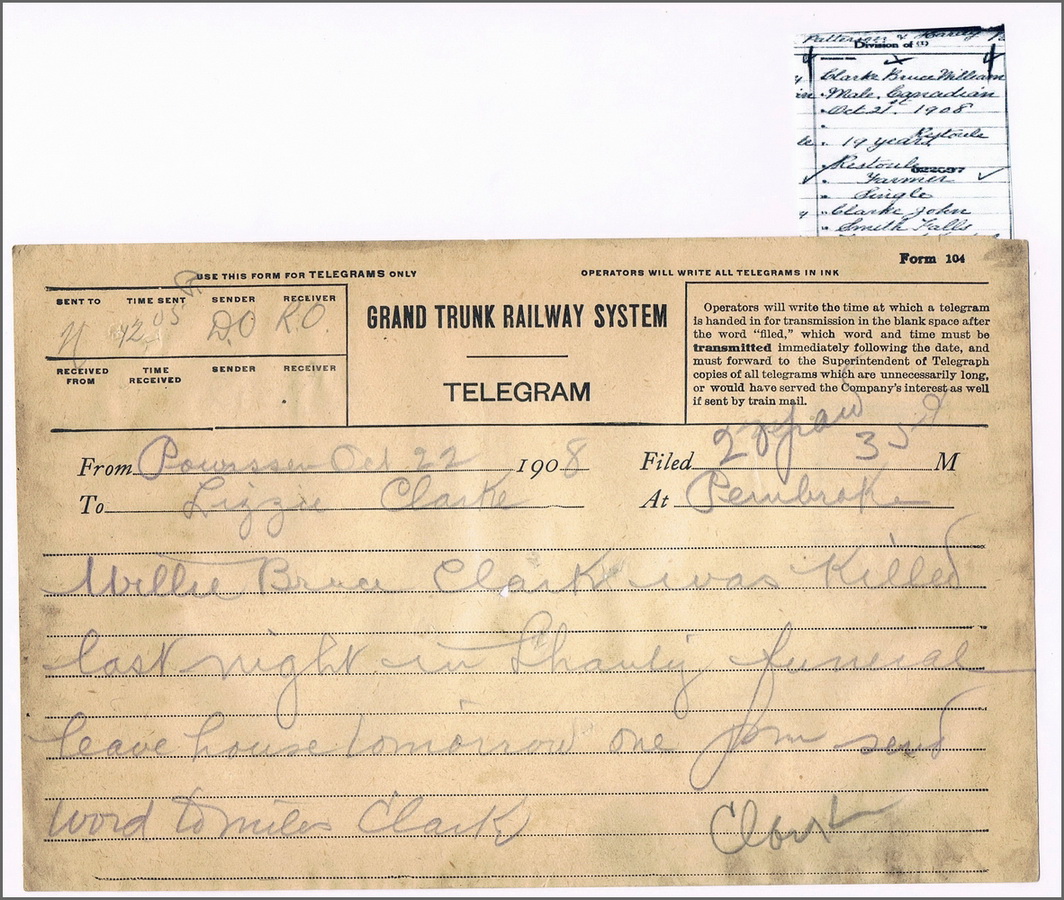 Patterson & Hardy
Division of (1)
Clarke Bruce William
Male. Canadian
Oct 21st. 1908
Restoule
19 years
Restoule
022097
Farmer
Single
Clarke John
Smith Falls
Form 104
USE THIS FORM FOR TELEGRAMS ONLY
OPERATORS WILL WRITE ALL TELEGRAMS IN INK
SENT TO TIME SENT SENDER RECEIVER
N D.O R.O.
RECEIVED FROM TIME RECEIVED SENDER RECEIVER
GRAND TRUNK RAILWAY SYSTEM
TELEGRAM
Operators will write the time at which a telegram
is handed in for transmission in the blank space after
the word "filed," which word and time must be
transmitted immediately following the date, and
must forward to the Superintendent of Telegraph
copies of all telegrams which are unnecessarily long,
or would have served the Company's interest as well
if sent by train mail.
27 paid 35
From Powassan Oct 22 1908 Filed M
To Lizzie Clarke At Pembroke
Willie Bruce Clark was Killed
last night in Shanty funeral
leave house tomorrow one pm send
word to miles Clark Clark